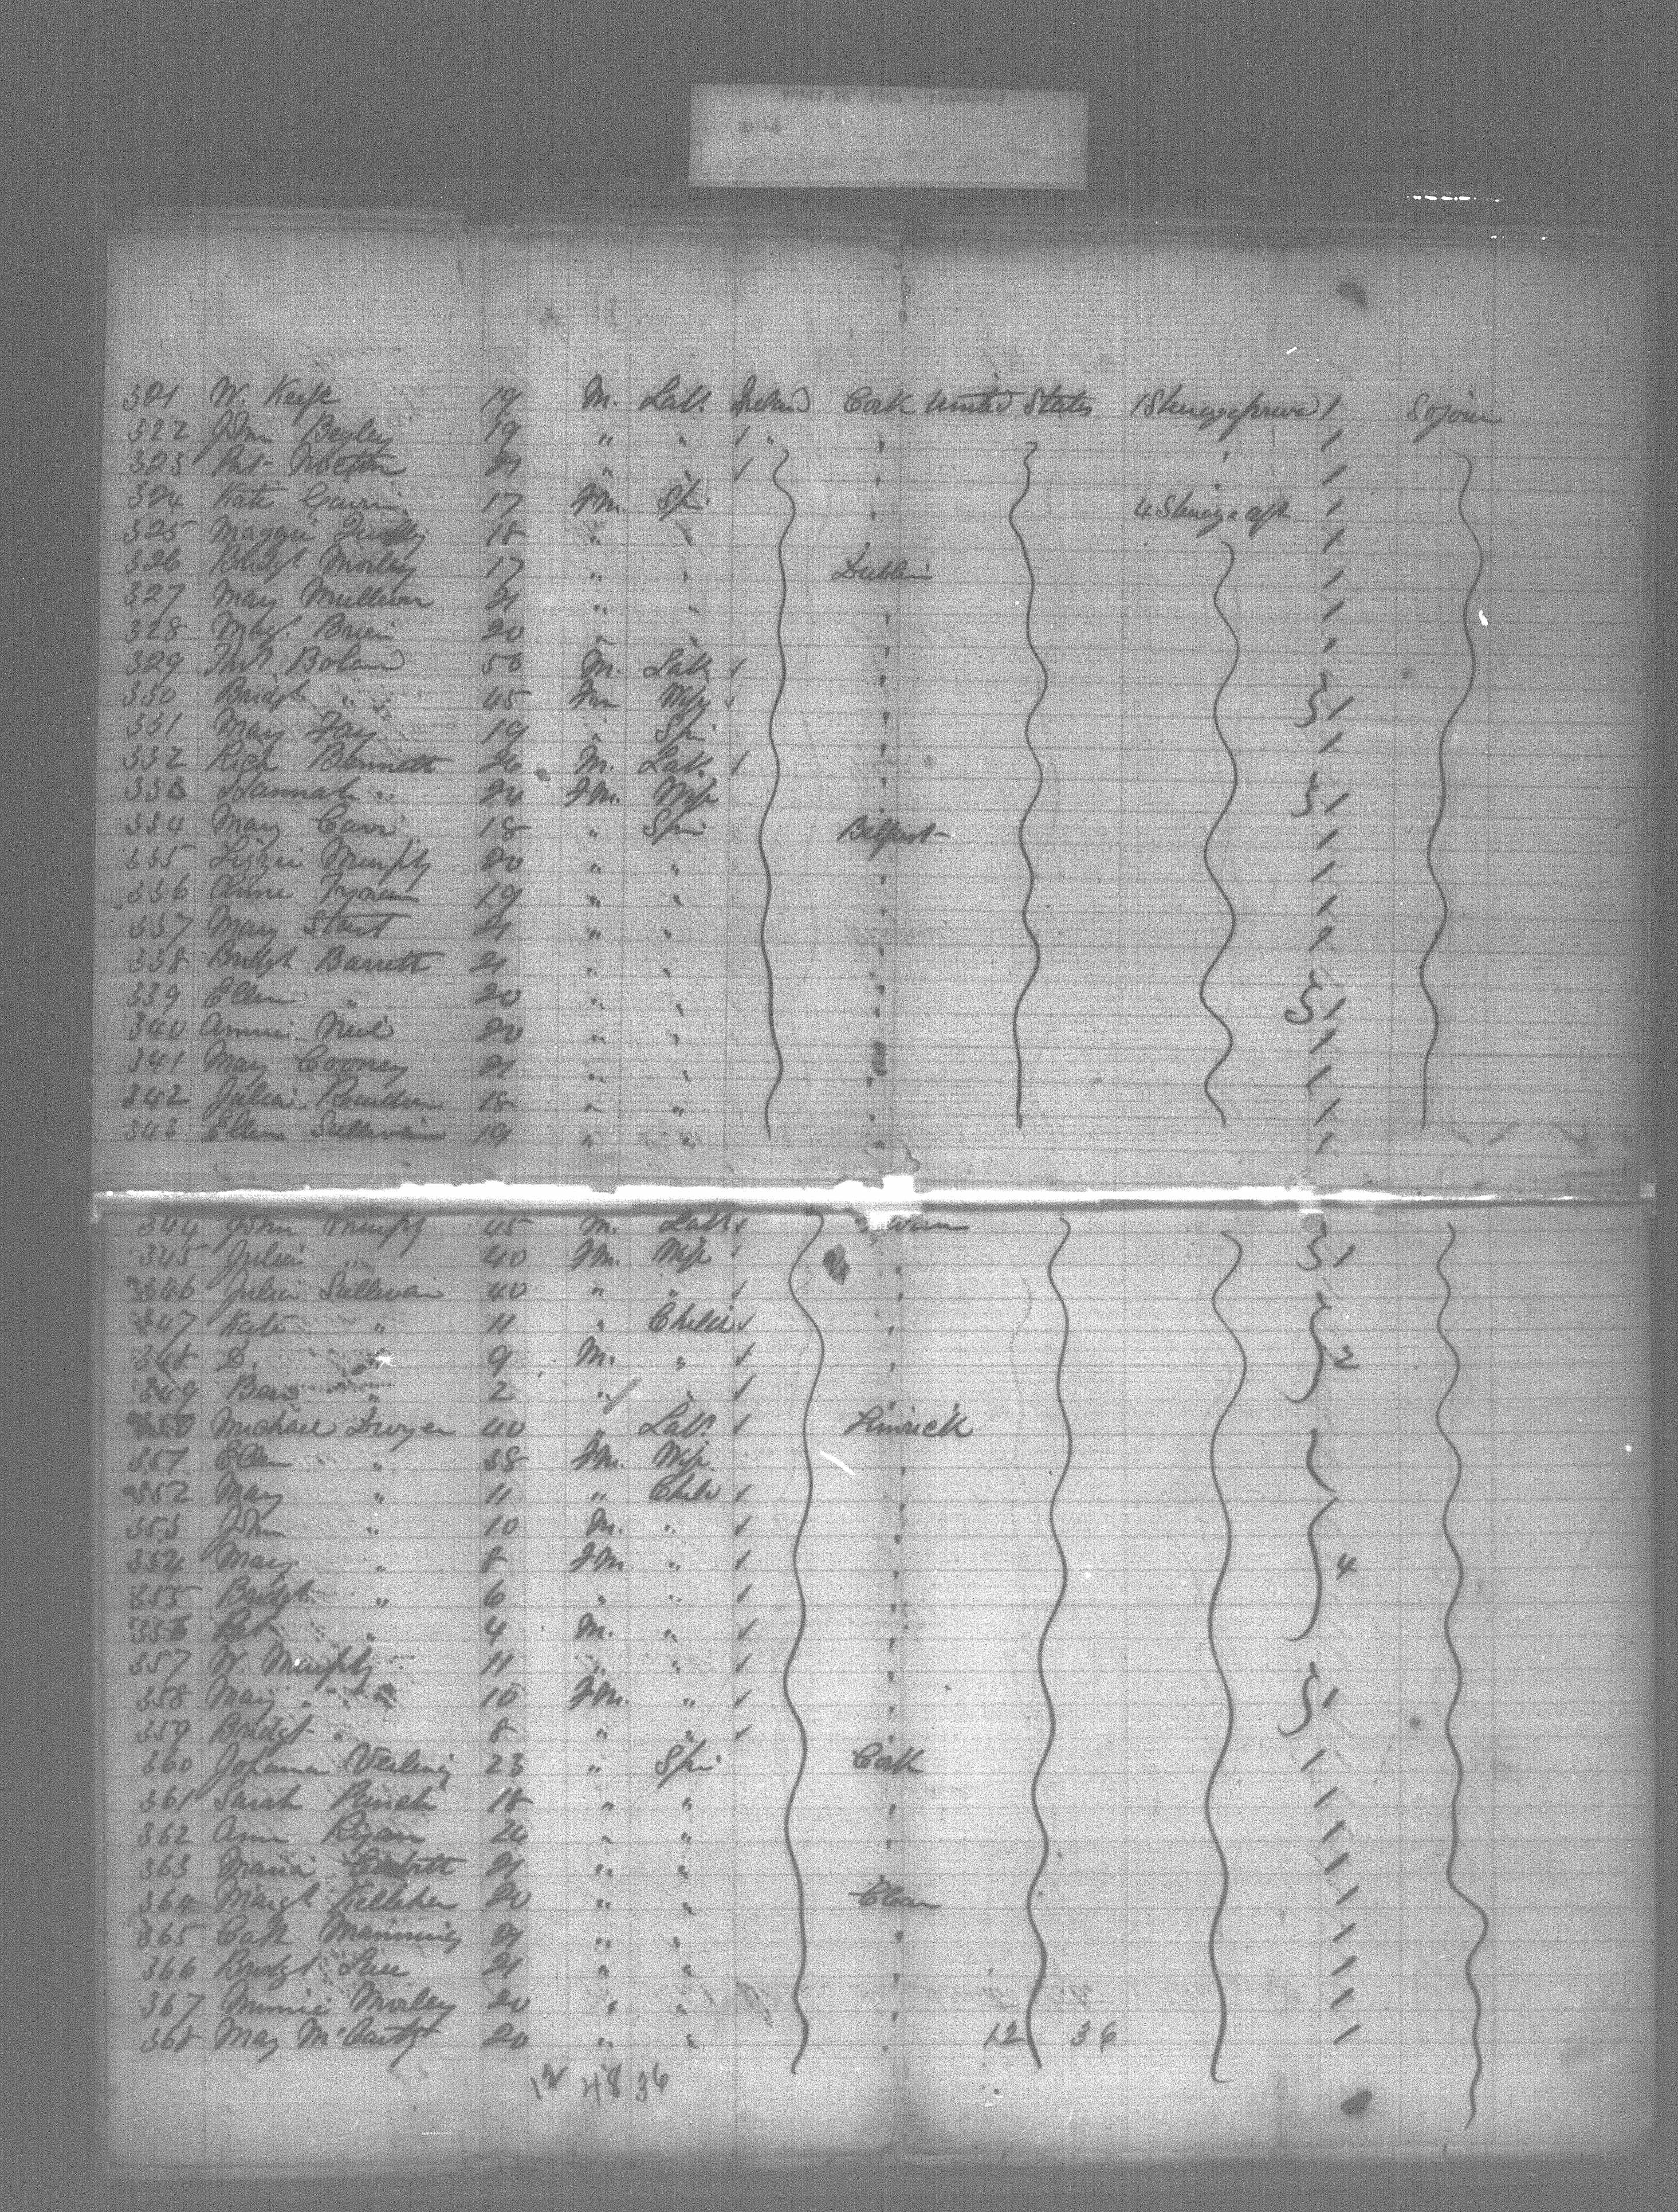 321 W. Keefe 19 M. Lab. Ireland Cork United States 1 Steerage forward 1 Sojourn
322 John Begley 19 " " " 1
323 Pat Norton 21 " " 1
324 Kate 17 Fm. Spi 4 Steerage aft 1
325 Maggie 18 " " 1
326 Bridgt Morley 17 " " Dublin 1
327 Mary 21 " " 1
328 Brien 20 " " 1
329 Boland 50 M. Lab.
330 Bridgt " 45 Fm Wife 1
331 Mary Fay 19 " Spi 1
332 Rich Bennett 26 M. Lab.
333 Hannah " 24 Fm. Wife 1
334 Mary 18 " Spi Belfast 1
335 Lizzie Murphy 20 " " 1
336 Anne 19 " " 1
337 Mary 21 " " 1
338 Bridgt Barrett 21 " "
339 Ellen " 20 " " 1
340 Annie Neil 20 " " 1
341 Mary Cooney 21 " " 1
342 Julia Reardon 18 " " 1
343 Ellen Sullivan 19 " " 1
344 John Murphy 45 M. Lab.
345 Julia " 40 Fm. Wife 1
346 Julia Sullivan 40 " "
347 Kate " 11 " Child
348 D. " 9 M. " 2
349 " 2 " "
350 Michael Dwyer 40 " Lab. Limrick
351 Ellen " 38 Fm. Wife
352 Mary " 11 " Child
353 John " 10 M. "
354 Mary " 8 Fm. " 4
355 Bridgt " 6 " "
356 Pat " 4 M. "
357 W. Murphy 11 " "
358 Mary " 10 Fm. " 1
359 Bridgt " 8 " "
360 Johanna 23 " Spi Cork 1
361 Sarah 18 " " 1
362 Ann Ryan 20 " " 1
363 Maria 21 " " 1
364 Margt Kelleher 20 " " Clare 1
365 Cath Manning 21 " " 1
366 Bridgt Shea 21 " " 1
367 Minnie Morley 20 " " 1
368 May McCarthy 20 " " 12 36 1
12 48 36